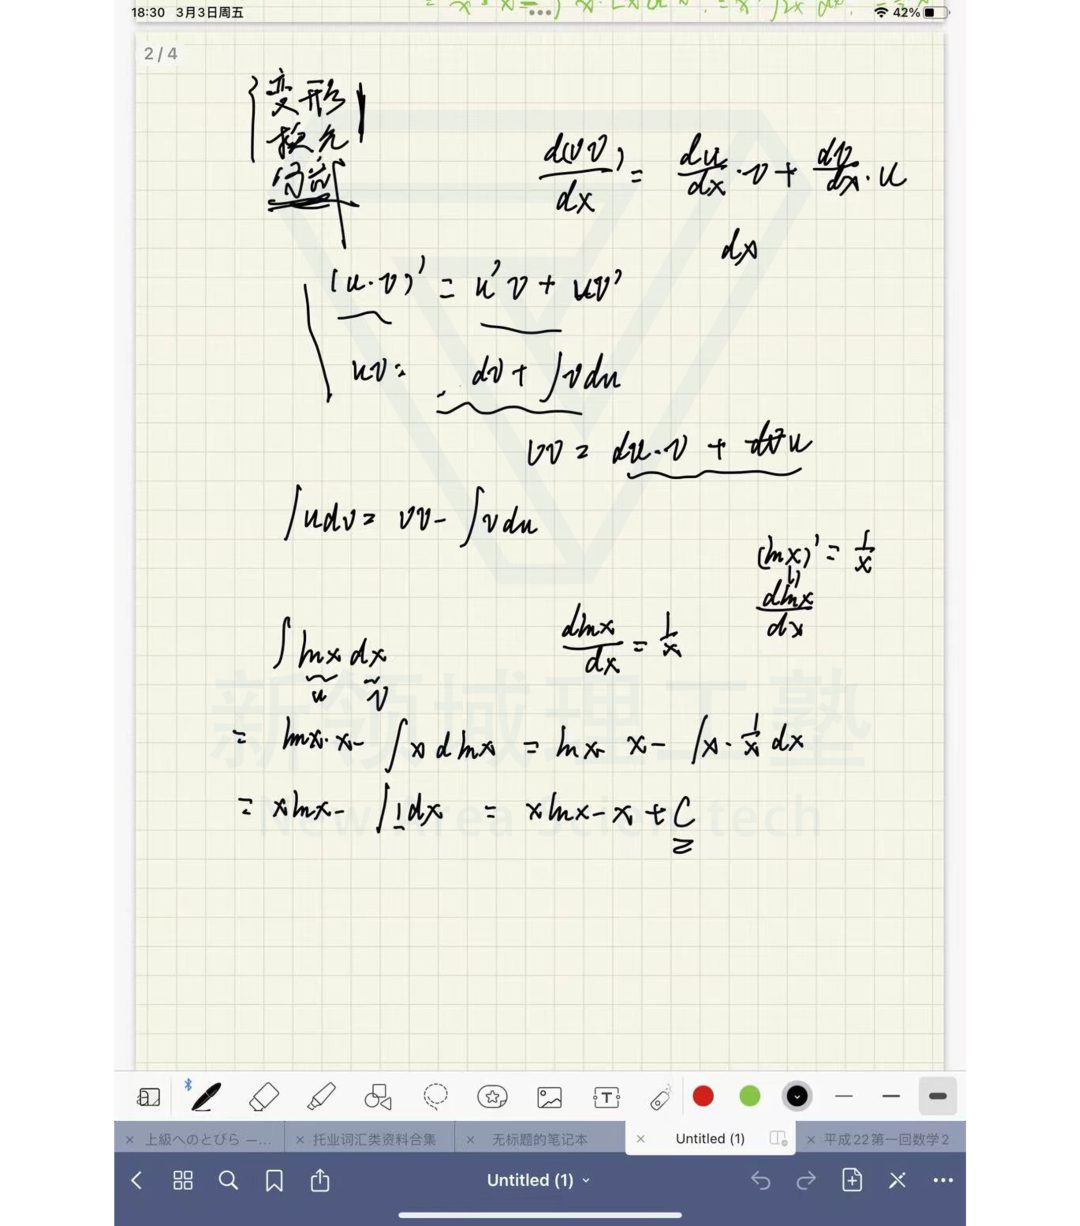 18:30 3月3日周五
42%
2/4
变形
换元
分部
d(uv)/dx = du/dx · v + dv/dx · u
dx
(u·v)' = u'v + uv'
uv = dv + ∫vdu
uv = du·v + dv u
∫udv = uv - ∫vdu
(lnx)' = 1/x
dlnx/dx
∫lnx dx
u v
dlnx/dx = 1/x
= lnx·x - ∫x dlnx = lnx x - ∫x · 1/x dx
= xlnx - ∫1dx = xlnx - x + C
新领域理工塾
New Area Scientech
上級へのとびら —...
托业词汇类资料合集
无标题的笔记本
Untitled (1)
平成22第一回数学2
Untitled (1)